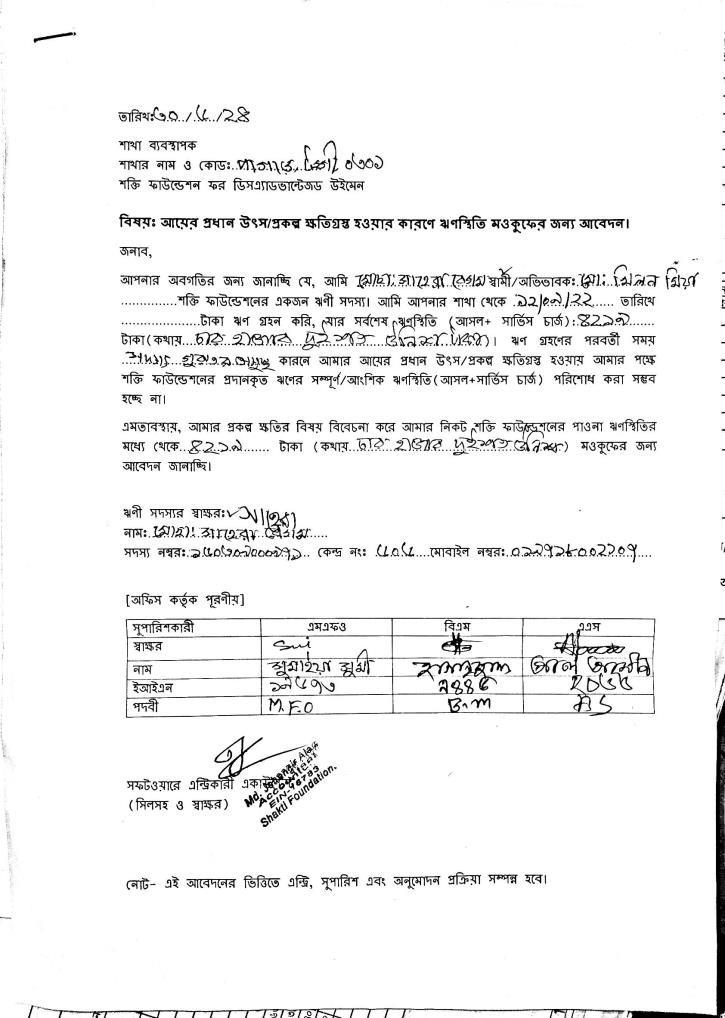 তারিখঃ ৩০/৬/২৪
শাখা ব্যবস্থাপক
শাখার নাম ও কোডঃ ০৩০১
শক্তি ফাউন্ডেশন ফর ডিসএ্যাডভান্টেজড উইমেন
বিষয়ঃ আয়ের প্রধান উৎস/প্রকল্প ক্ষতিগ্রস্থ হওয়ার কারণে ঋণস্থিতি মওকুফের জন্য আবেদন।
জনাব,
আপনার অবগতির জন্য জানাচ্ছি যে, আমি মোছাঃ সাহেরা বেগম স্বামী/অভিভাবক: মো: মিলন মিয়া
...............শক্তি ফাউন্ডেশনের একজন ঋণী সদস্য। আমি আপনার শাখা থেকে ..১২/০৯/২২..... তারিখে
.....................টাকা ঋণ গ্রহন করি, যার সর্বশেষ ঋণস্থিতি (আসল+ সার্ভিস চার্জ):৪২১৯
টাকা(কথায়..চার হাজার দুইশত উনিশ টাকা)। ঋণ গ্রহণের পরবর্তী সময়
কারনে আমার আয়ের প্রধান উৎস/প্রকল্প ক্ষতিগ্রস্থ হওয়ায় আমার পক্ষে
শক্তি ফাউন্ডেশনের প্রদানকৃত ঋণের সম্পূর্ণ/আংশিক ঋণস্থিতি(আসল+সার্ভিস চার্জ) পরিশোধ করা সম্ভব
হচ্ছে না।
এমতাবস্থায়, আমার প্রকল্প ক্ষতির বিষয় বিবেচনা করে আমার নিকট শক্তি ফাউন্ডেশনের পাওনা ঋণস্থিতির
মধ্যে থেকে..৪২১৯....... টাকা (কথায়..চার হাজার দুইশত উনিশ) মওকুফের জন্য
আবেদন জানাচ্ছি।
ঋণী সদস্যর স্বাক্ষর: সাহেরা
নাম: মোছা: সাহেরা বেগম.....
সদস্য নম্বর: কেন্দ্র নং: ৬০৬ ....মোবাইল নম্বর:
[অফিস কর্তৃক পূরণীয়]
সুপারিশকারী এমএফও বিএম এএস
স্বাক্ষর
নাম সুমাইয়া সুমী
ইআইএন
পদবী M.F.O B.M AS
সফটওয়ারে এন্ট্রিকারী
(সিলসহ ও স্বাক্ষর)
Md. Jahangir Alam
ACCOUNTANT
EIN-16793
Shakti Foundation.
নোট- এই আবেদনের ভিত্তিতে এন্ট্রি, সুপারিশ এবং অনুমোদন প্রক্রিয়া সম্পন্ন হবে।